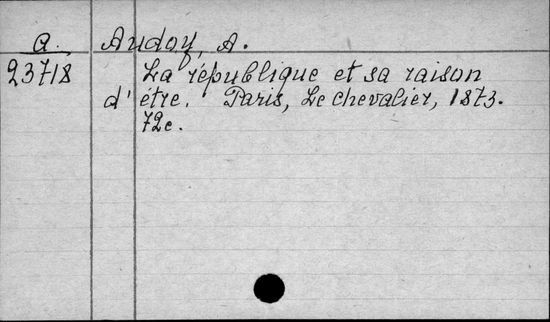 a. Audoy, A.
23718 La république et sa raison
d'être. Paris, Le Chevalier, 1873.
72c.